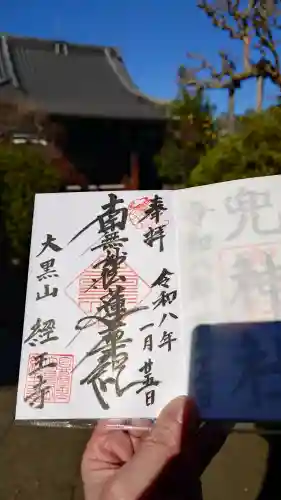 奉拝
令和八年
一月廿五日
南無妙法蓮華経
大黒山
経王寺
兜
神
社